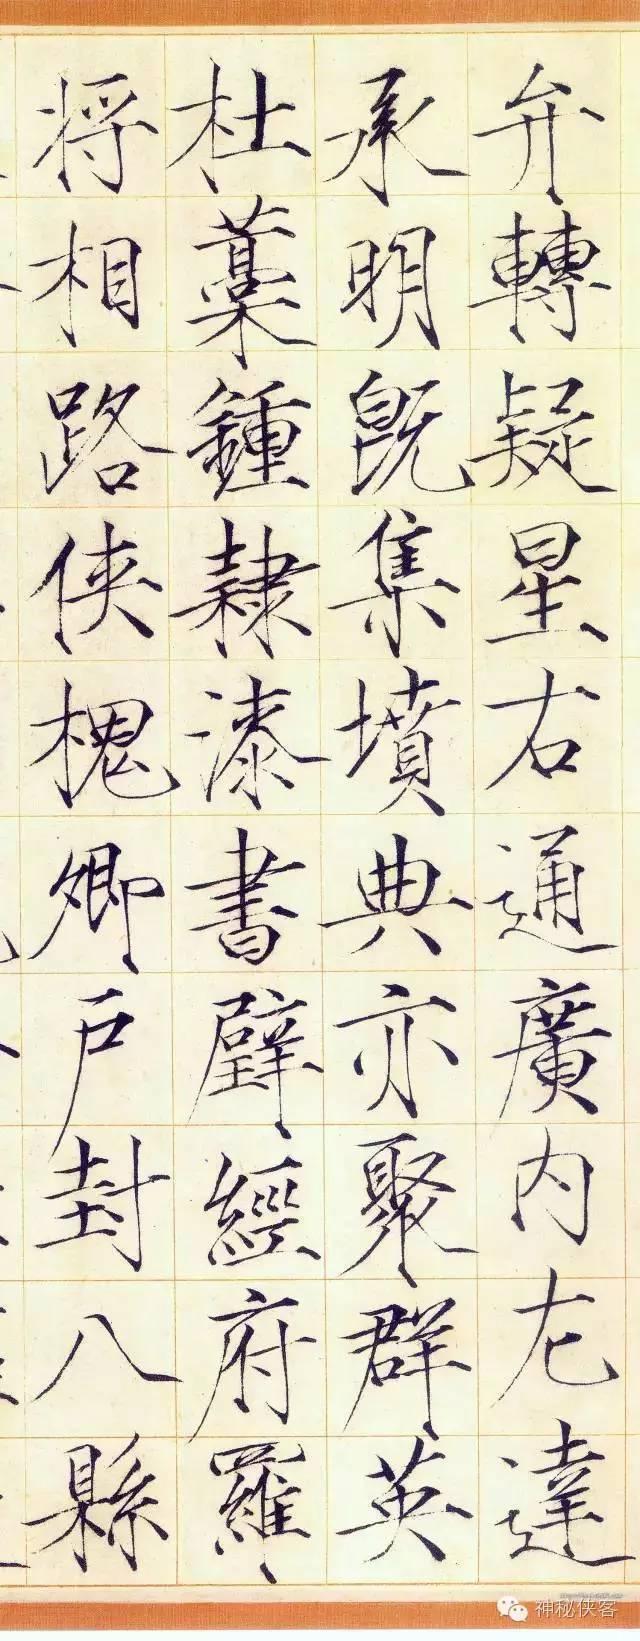 弁轉疑星右通廣内左達
承明既集墳典亦聚群英
杜藁鍾隸漆書壁經府羅
将相路侠槐卿戶封八縣
神秘侠客